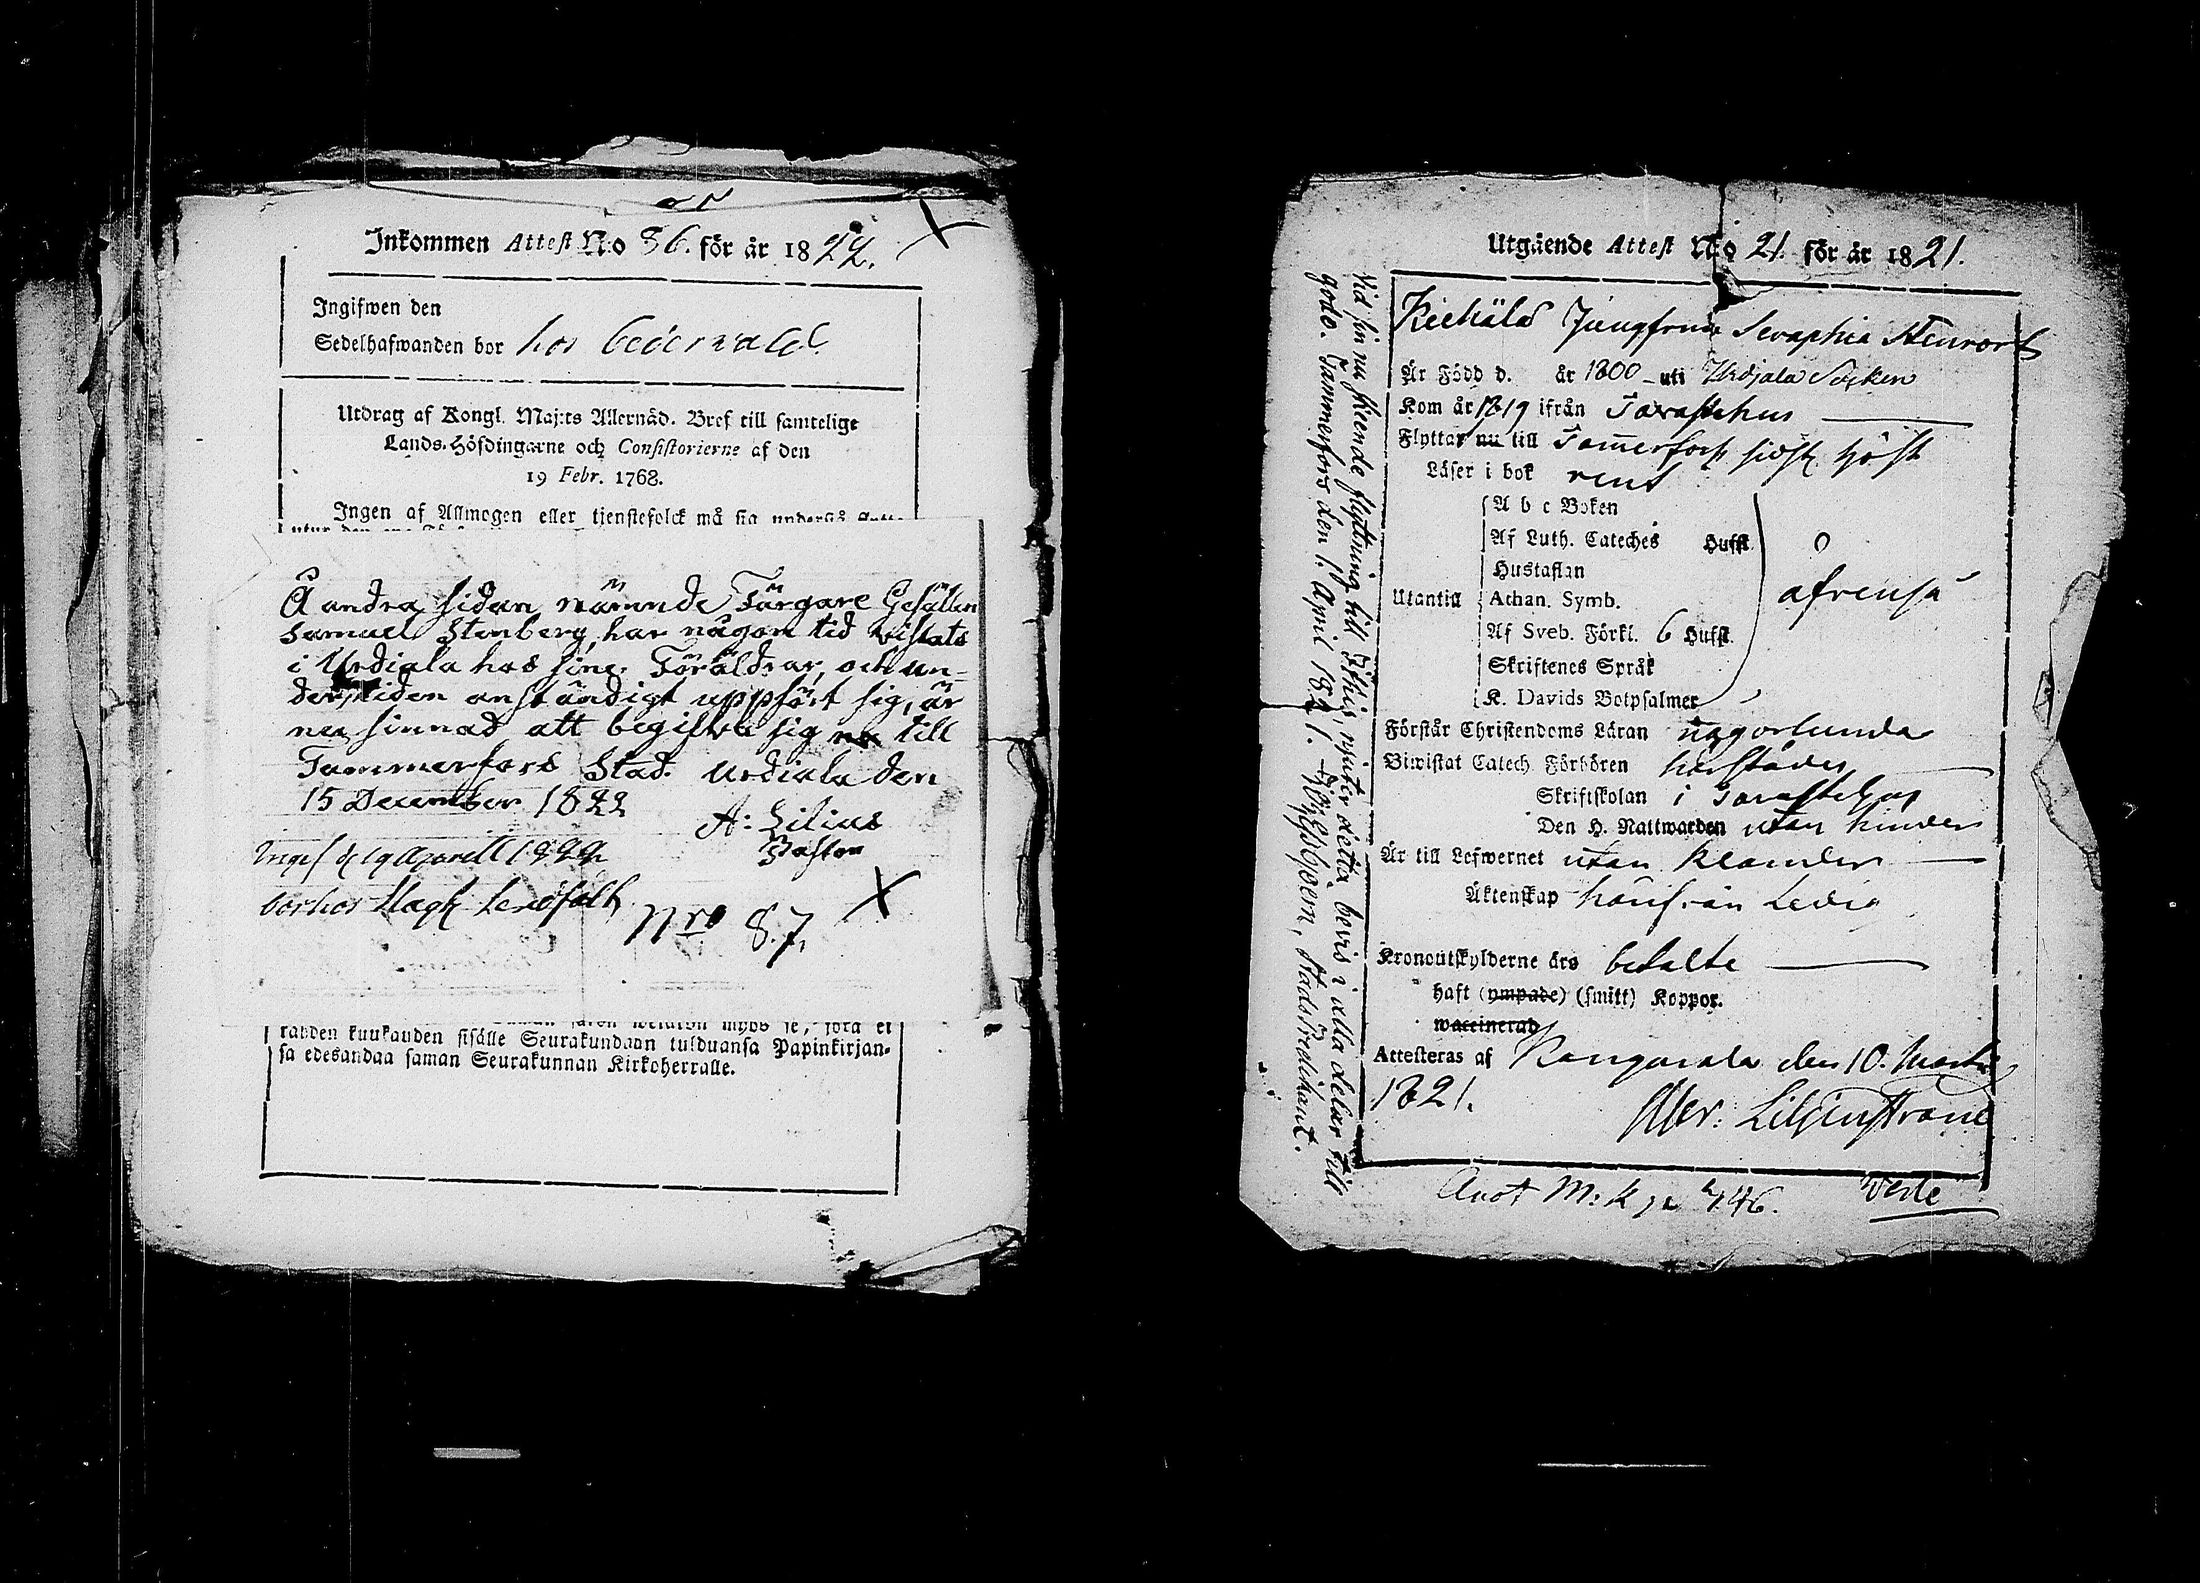 Inkommen Attest N:o 86. för år 1822.
Ingifwen den
Sedelhafwanden bor hos Cederwald.
Utdrag af Kongl. Maj:ts Allernåd. Bref till samtelige
Lands-Höfdingarne och Consistorierne af den
19 Febr. 1768.
Ingen af Allmogen eller tjenstefolck må sig understå flytta
Å andra sidan nämnde Färgare Gesällen
Samuel Stenberg har någon tid vistats
i Urdiala hos sine Föräldrar, och un-
der tiden anständigt uppfört sig, är
nu sinnad att begifva sig till
Tammerfors Stad. Urdiala den
15 December 1822
A: Lilius
Pastor
bor hos
Nro 87.
randen kuukauden sisälle Seurakundaan tulduansa Papinkirjan-
sa edesandaa saman Seurakunnan Kirkoherralle.
Utgående Attest N:o 21. för år 1821.
Jungfrun Seraphia Stenroos
Är Född d. år 1800 uti Urdjala Socken
Kom år 1819 ifrån Tavastehus
Flyttar nu till Tammerfors sidst. höst
Läser i bok rent
A b c Boken
Af Luth. Cateches Hufst.
Hustaflan
Utantill Athan. Symb.
Af Sveb. Förkl. 6 Hufst.
Skriftenes Språk
K. Davids Botpsalmer
Förstår Christendoms Läran någorlunda
Biwistat Catech. Förhören
Skriftskolan i Tavastehus
Den H. Nattwarden utan hinder
Är till Lefwernet utan klander
Äktenskap härifrån Ledig
Kronoutskylderne äro betalte
haft (ympade) (smitt) Koppor.
waccinerad
Attesteras af Kangasala den 10. Martii
1821.
Liljenstrand
Vid sin nu skeende flyttning till Ithis, njuter detta bevis i alla delar till
godo. Tammerfors den 1. April 1821. Stadspredikant.
Anot M. K. 146.
Verte